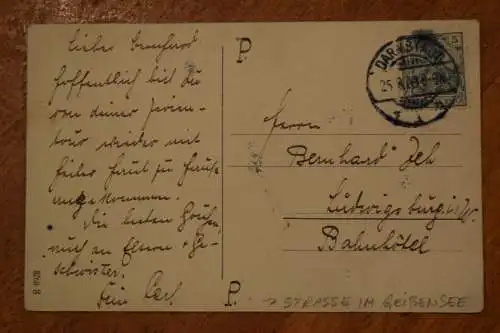 Lieber Bernhard
hoffentlich bist Du
von deiner Ferien-
tour wieder mit
heiler Haut zu Hause
angekommen.
Die besten Grüße
auch an Eltern + Ge-
schwister.
Dein Carl.
P.
P.
DARMSTADT
25.
Herrn
Bernhard
Ludwigsburg i. W.
Bahnhôtel
→ STRASSE IM GEIßENSEE